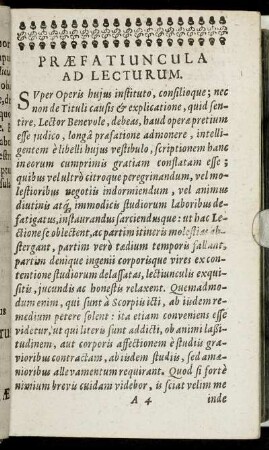 PRÆFATIUNCULA
AD LECTURUM.
SVper Operis hujus instituto, consilioque; nec
non de Tituli causis & explicatione, quid sen-
tire, Lector Benevole, debeas, haud opera pretium
esse judico, longâ præfatione admonere, intelli-
gentem è libelli hujus vestibulo, scriptionem hanc
in eorum cumprimis gratiam constatam esse;
quibus vel ultrò citroque peregrinandum, vel mo-
lestioribus negotiis indormiendum, vel animus
diutinis atq́; immodicis studiorum laboribus de-
fatigatus, instaurandus sarciendusque: ut hac Le-
ctione se oblectent, ac partim itineris molestias ab-
stergant, partim verò tædium temporis fallant,
partim denique ingenii corporisque vires ex con-
tentione studiorum delassatas, lectiunculis exqui-
sitis, jucundis ac honestis relaxent. Quemadmo-
dum enim, qui sunt à Scorpiis icti, ab iisdem re-
medium petere solent: ita etiam conveniens esse
videtur, ut qui literis sunt addicti, ob animi lassi-
tudinem, aut corporis affectionem è studiis gra-
vioribus contractam, ab iisdem studiis, sed amæ-
nioribus allevamentum requirant. Quod si fortè
nimium brevis cuidam videbor, is sciat velim me
A 4 inde